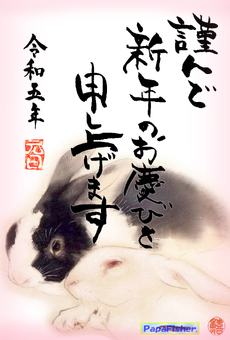 謹んで
新年のお慶びを
申し上げます
令和五年
元旦
PapaFisher